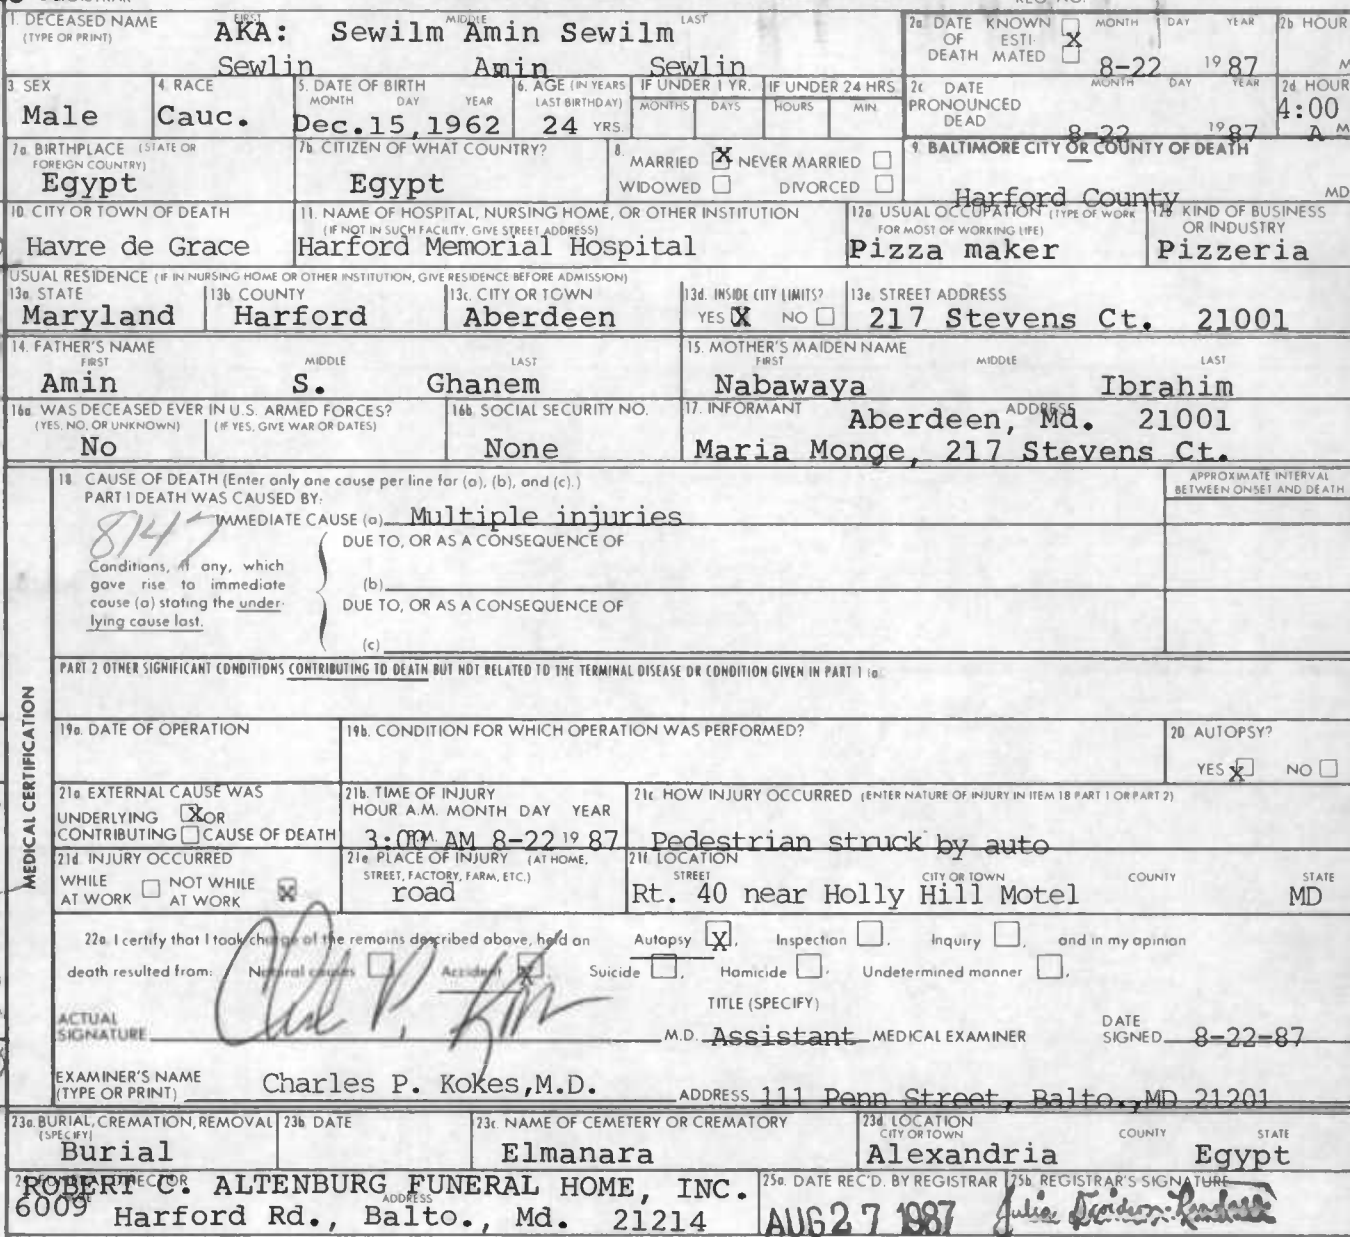 1. DECEASED NAME (TYPE OR PRINT) FIRST MIDDLE LAST
AKA: Sewilm Amin Sewilm
Sewlin Amin Sewlin
2a DATE OF DEATH KNOWN ESTIMATED X MONTH DAY YEAR
8-22 1987
2b HOUR M
3 SEX
Male
4 RACE
Cauc.
5. DATE OF BIRTH MONTH DAY YEAR
Dec.15,1962
6. AGE (IN YEARS LAST BIRTHDAY)
24 YRS.
IF UNDER 1 YR. MONTHS DAYS
IF UNDER 24 HRS HOURS MIN.
2c DATE PRONOUNCED DEAD MONTH DAY YEAR
8-22 1987
2d HOUR
4:00 A M
7a BIRTHPLACE (STATE OR FOREIGN COUNTRY)
Egypt
7b CITIZEN OF WHAT COUNTRY?
Egypt
8. MARRIED X NEVER MARRIED
WIDOWED DIVORCED
9. BALTIMORE CITY OR COUNTY OF DEATH
Harford County MD
10. CITY OR TOWN OF DEATH
Havre de Grace
11. NAME OF HOSPITAL, NURSING HOME, OR OTHER INSTITUTION
(IF NOT IN SUCH FACILITY, GIVE STREET ADDRESS)
Harford Memorial Hospital
12a USUAL OCCUPATION (TYPE OF WORK FOR MOST OF WORKING LIFE)
Pizza maker
12b KIND OF BUSINESS OR INDUSTRY
Pizzeria
USUAL RESIDENCE (IF IN NURSING HOME OR OTHER INSTITUTION, GIVE RESIDENCE BEFORE ADMISSION)
13a. STATE
Maryland
13b COUNTY
Harford
13c. CITY OR TOWN
Aberdeen
13d. INSIDE CITY LIMITS?
YES X NO
13e STREET ADDRESS
217 Stevens Ct. 21001
14. FATHER'S NAME FIRST MIDDLE LAST
Amin S. Ghanem
15. MOTHER'S MAIDEN NAME FIRST MIDDLE LAST
Nabawaya Ibrahim
16a WAS DECEASED EVER IN U.S. ARMED FORCES?
(YES, NO, OR UNKNOWN) (IF YES, GIVE WAR OR DATES)
No
16b SOCIAL SECURITY NO.
None
17. INFORMANT ADDRESS
Aberdeen, Md. 21001
Maria Monge, 217 Stevens Ct.
MEDICAL CERTIFICATION
18 CAUSE OF DEATH (Enter only one cause per line for (a), (b), and (c).)
PART I DEATH WAS CAUSED BY:
APPROXIMATE INTERVAL BETWEEN ONSET AND DEATH
IMMEDIATE CAUSE (a) Multiple injuries
8147
DUE TO, OR AS A CONSEQUENCE OF
Conditions, if any, which
gave rise to immediate
cause (a) stating the under-
lying cause last.
(b)
DUE TO, OR AS A CONSEQUENCE OF
(c)
PART 2 OTHER SIGNIFICANT CONDITIONS CONTRIBUTING TO DEATH BUT NOT RELATED TO THE TERMINAL DISEASE OR CONDITION GIVEN IN PART 1 (a)
19a. DATE OF OPERATION
19b. CONDITION FOR WHICH OPERATION WAS PERFORMED?
20 AUTOPSY?
YES X NO
21a EXTERNAL CAUSE WAS
UNDERLYING X OR
CONTRIBUTING CAUSE OF DEATH
21b. TIME OF INJURY
HOUR A.M. MONTH DAY YEAR
3:00 AM 8-22 1987
21c HOW INJURY OCCURRED (ENTER NATURE OF INJURY IN ITEM 18 PART 1 OR PART 2)
Pedestrian struck by auto
21d INJURY OCCURRED
WHILE AT WORK NOT WHILE AT WORK X
21e PLACE OF INJURY (AT HOME, STREET, FACTORY, FARM, ETC.)
road
21f LOCATION STREET CITY OR TOWN COUNTY STATE
Rt. 40 near Holly Hill Motel MD
22a I certify that I took charge of the remains described above, held an Autopsy X, Inspection, Inquiry, and in my opinion
death resulted from: Natural causes Accident X, Suicide, Homicide, Undetermined manner.
TITLE (SPECIFY)
ACTUAL SIGNATURE M.D. Assistant MEDICAL EXAMINER
DATE SIGNED 8-22-87
EXAMINER'S NAME (TYPE OR PRINT) Charles P. Kokes,M.D.
ADDRESS 111 Penn Street, Balto.,MD 21201
23a. BURIAL, CREMATION, REMOVAL (SPECIFY)
Burial
23b DATE
23c. NAME OF CEMETERY OR CREMATORY
Elmanara
23d LOCATION CITY OR TOWN COUNTY STATE
Alexandria Egypt
ROBERT C. ALTENBURG FUNERAL HOME, INC.
ADDRESS
6009 Harford Rd., Balto., Md. 21214
25a. DATE REC'D. BY REGISTRAR
AUG 27 1987
25b REGISTRAR'S SIGNATURE